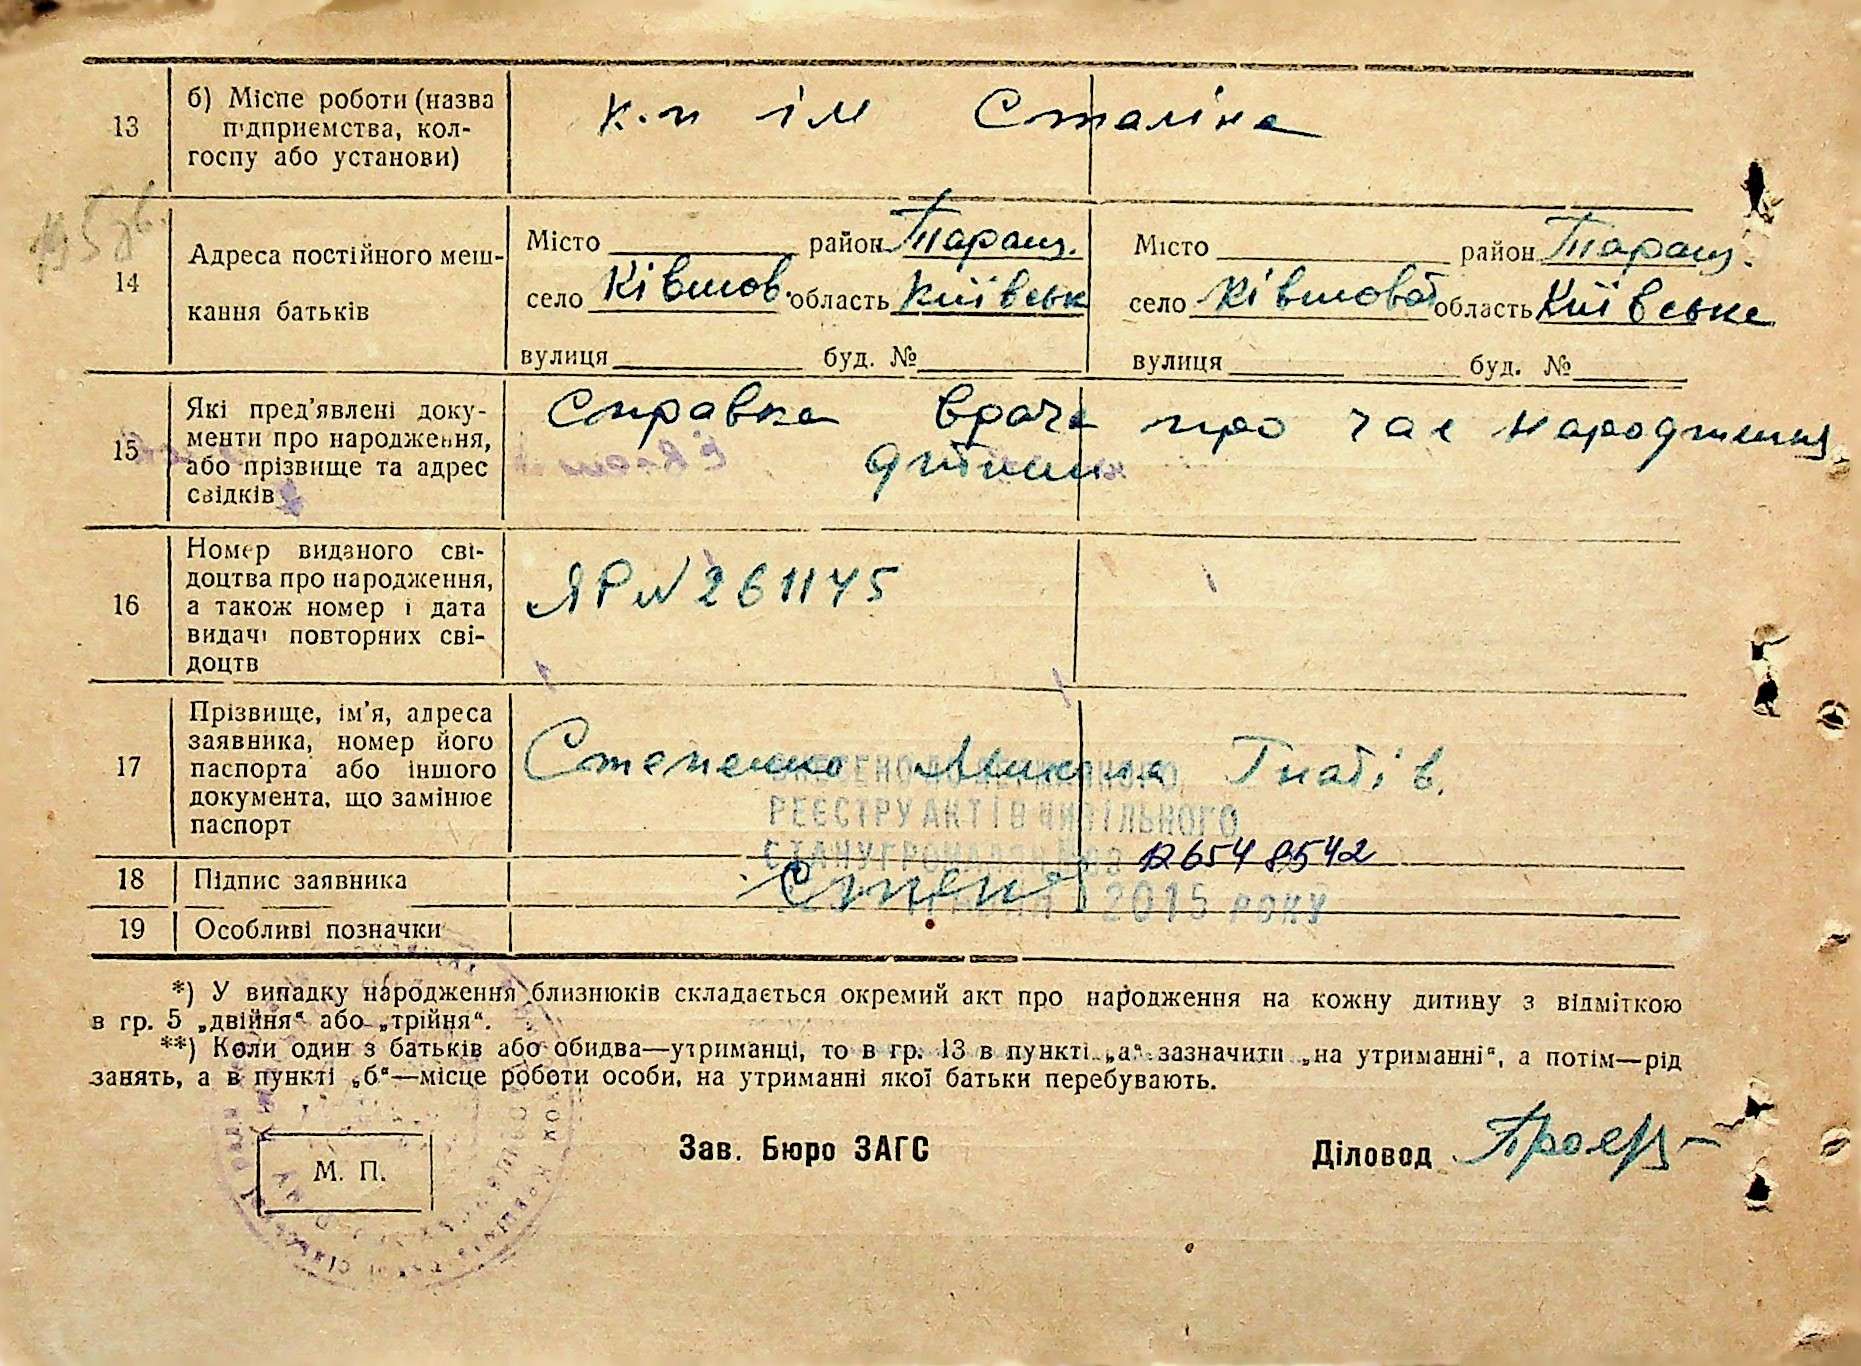 13
б) Місце роботи (назва
підприємства, кол-
госпу або установи)
к-п ім Сталіна
14
Адреса постійного меш-
кання батьків
Місто район Таращ.
село Ківшов. область Київськ
вулиця буд. №
Місто район Таращ.
село Ківшоват область Київське
вулиця буд. №
15
Які пред'явлені доку-
менти про народження,
або прізвище та адрес
свідків
Справка врача про час народження
дитини
16
Номер виданого сві-
доцтва про народження,
а також номер і дата
видачі повторних сві-
доцтв
ЯР № 261145
17
Прізвище, ім'я, адреса
заявника, номер його
паспорта або іншого
документа, що замінює
паспорт
Степенко Гнатів.
РЕЄСТРУ АКТІВ ЦИВІЛЬНОГО
СТАНУ ГРОМАДЯН ЗА 126548542
2015 РОКУ
18
Підпис заявника
19
Особливі позначки
*) У випадку народження близнюків складається окремий акт про народження на кожну дитину з відміткою
в гр. 5 „двійня“ або „трійня“.
**) Коли один з батьків або обидва—утриманці, то в гр. 13 в пункті „а“ зазначити „на утриманні“, а потім—рід
занять, а в пункті „б“—місце роботи особи, на утриманні якої батьки перебувають.
М. П.
Зав. Бюро ЗАГС
Діловод